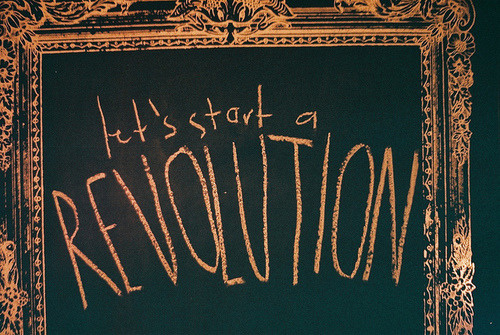 let's start a
REVOLUTION